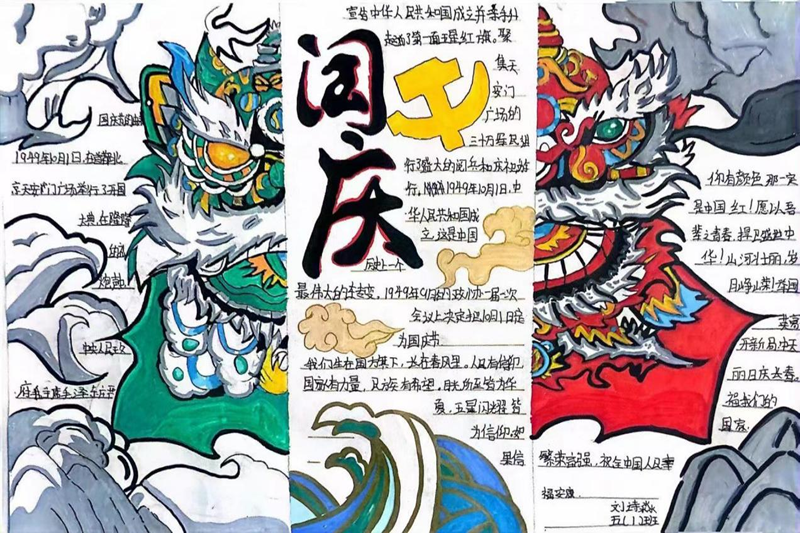 国庆
国庆节的由来
1949年10月1日,在首都北
京天安门广场举行了开国
大典,在隆隆
炮声
中央人民政
府主席毛泽东庄严
宣告中华人民共和国成立并亲手升
起了第一面五星红旗。聚
集天
安门
广场的
三十万军民进
行了盛大的阅兵和庆祝游
行。1949年10月1日,中
华人民共和国成
立,这是中国
历史上一个
最伟大的转变,1949年
会议上决定把10月1日定
为国庆节
我们生在国旗下,长在春风里,人民有信仰
国家有力量,民族有希望,目光所至皆为华
夏,五星闪耀皆
为信仰,如
果信
你有颜色那一定
是中国红!愿以吾
辈之青春,捍卫盛世中
华!山河壮丽,岁
月峥嵘!祖国
丽日庆长春。
祝我们的
国家
繁荣富强,祝全中国人民幸
福安康
五(1)班